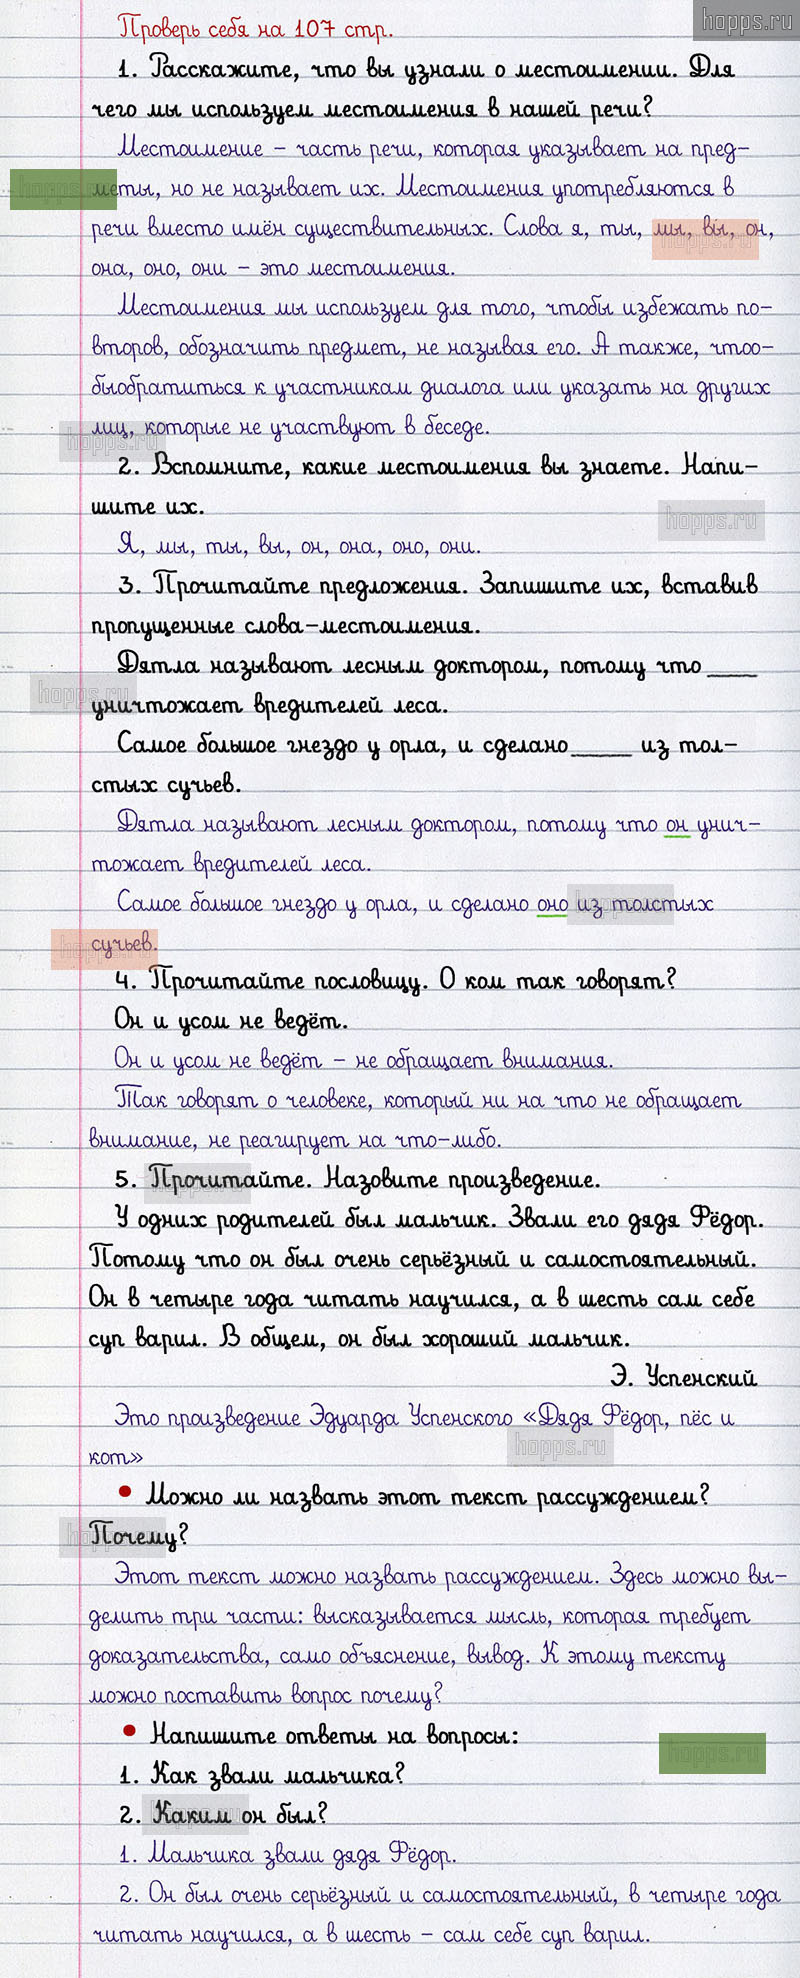 hopps.ru
Проверь себя на 107 стр.
1. Расскажите, что вы узнали о местоимении. Для
чего мы используем местоимения в нашей речи?
Местоимение – часть речи, которая указывает на пред-
меты, но не называет их. Местоимения употребляются в
речи вместо имён существительных. Слова я, ты, мы, вы, он,
она, оно, они – это местоимения.
Местоимения мы используем для того, чтобы избежать по-
второв, обозначить предмет, не называя его. А также, чтоо-
быобратиться к участникам диалога или указать на других
лиц, которые не участвуют в беседе.
2. Вспомните, какие местоимения вы знаете. Напи-
шите их.
Я, мы, ты, вы, он, она, оно, они.
3. Прочитайте предложения. Запишите их, вставив
пропущенные слова-местоимения.
Дятла называют лесным доктором, потому что ____
уничтожает вредителей леса.
Самое большое гнездо у орла, и сделано _____ из тол-
стых сучьев.
Дятла называют лесным доктором, потому что он унич-
тожает вредителей леса.
Самое большое гнездо у орла, и сделано оно из толстых
сучьев.
4. Прочитайте пословицу. О ком так говорят?
Он и усом не ведёт.
Он и усом не ведёт – не обращает внимания.
Так говорят о человеке, который ни на что не обращает
внимание, не реагирует на что-либо.
5. Прочитайте. Назовите произведение.
У одних родителей был мальчик. Звали его дядя Фёдор.
Потому что он был очень серьёзный и самостоятельный.
Он в четыре года читать научился, а в шесть сам себе
суп варил. В общем, он был хороший мальчик.
Э. Успенский
Это произведение Эдуарда Успенского «Дядя Фёдор, пёс и
кот»
• Можно ли назвать этот текст рассуждением?
Почему?
Этот текст можно назвать рассуждением. Здесь можно вы-
делить три части: высказывается мысль, которая требует
доказательства, само объяснение, вывод. К этому тексту
можно поставить вопрос почему?
• Напишите ответы на вопросы:
1. Как звали мальчика?
2. Каким он был?
1. Мальчика звали дядя Фёдор.
2. Он был очень серьёзный и самостоятельный, в четыре года
читать научился, а в шесть – сам себе суп варил.